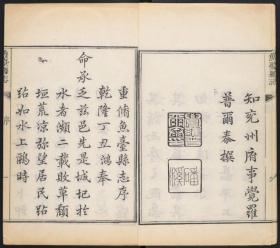 知兗州府事覺羅
普爾泰撰
重脩魚臺縣志序
乾隆丁丑鴻奉
命承乏茲邑先是城圮於
水者瀕二載敗草頽
垣荒涼彌望居民跕
跕如水上鷗時
序